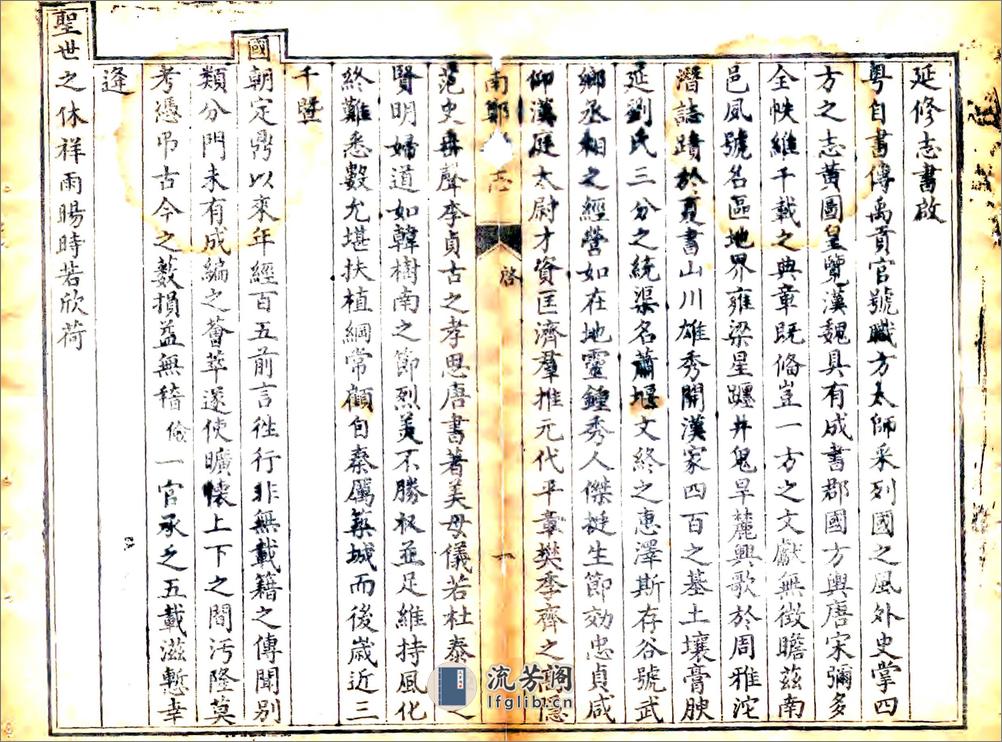 延修志書啟
粤自書傳禹貢官號職方太師采列國之風外史掌四
方之志黄圖皇覽漢魏具有成書郡國方輿唐宋彌多
全帙維千載之典章既俻豈一方之文獻無徴瞻茲南
邑夙號名區地界雍梁星躔井鬼旱麓興歌於周雅沱
潛誌蹟於夏書山川雄秀開漢家四百之基土壤膏腴
延劉氏三分之統渠名蕭堰文終之惠澤斯存谷號武
鄉丞相之經營如在地靈鍾秀人傑挺生節効忠貞咸
仰漢庭太尉才資匡濟羣推元代平章樊季齊之隱
南鄭志
啓
一
范史垂聲李貞古之孝思唐書著美母儀若杜泰之
賢明婦道如韓樹南之節烈美不勝枚並足維持風化
終難悉數允堪扶植綱常顧自秦屬築城而後歲近三
千暨
國朝定鼎以來年經百五前言徃行非無載籍之傳聞别
類分門未有成編之薈萃遂使曠懷上下之間汚隆莫
考憑吊古今之藪損益無稽 儉一官承乏五載滋慙幸
逢
聖世之休祥雨暘時若欣荷
流芳閣
lfglib.cn